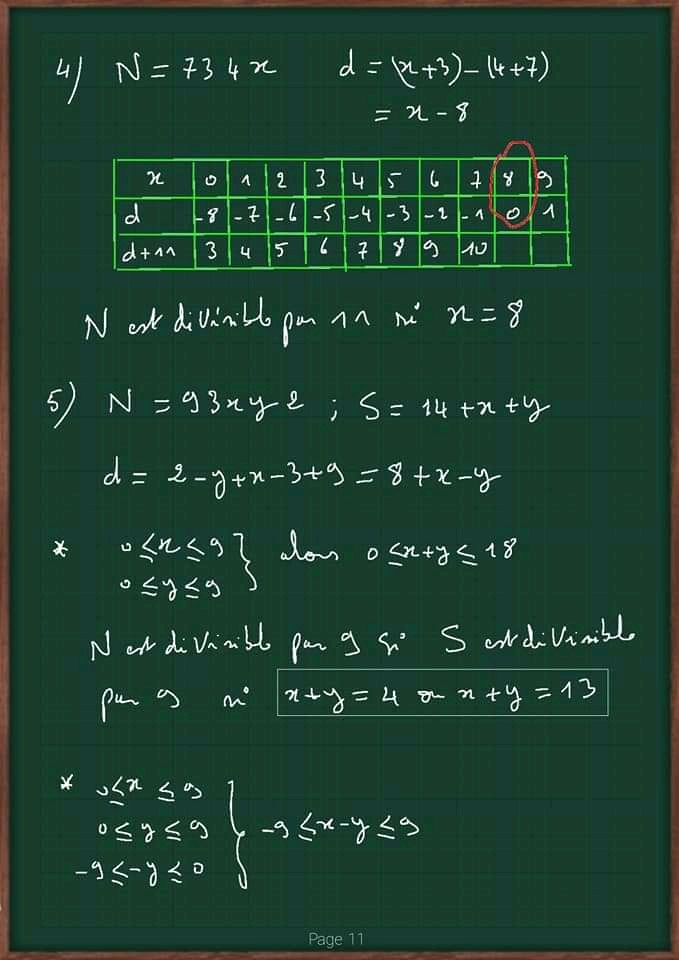 4) N = 734x d = (x+3)-(4+7)
= x - 8
x 0 1 2 3 4 5 6 7 8 9
d -8 -7 -6 -5 -4 -3 -2 -1 0 1
d+11 3 4 5 6 7 8 9 10
N est divisible par 11 si x = 8
5) N = 93xy2 ; S = 14 + x + y
d = 2-y+x-3+9 = 8+x-y
* 0 ≤ x ≤ 9 } alors 0 ≤ x+y ≤ 18
0 ≤ y ≤ 9
N est divisible par 9 si S est divisible
par 9 si x+y = 4 ou x+y = 13
* 0 ≤ x ≤ 9
0 ≤ y ≤ 9 } -9 ≤ x-y ≤ 9
-9 ≤ -y ≤ 0
Page 11